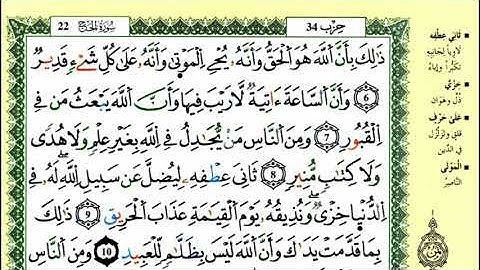 حِزْب 34
سُورَةُ الْحَجّ 22
ذَٰلِكَ بِأَنَّ اَللَّهَ هُوَ اَلْحَقُّ وَأَنَّهُۥ يُحْيِ اِلْمَوْتَىٰ وَأَنَّهُۥ عَلَىٰ كُلِّ شَيْءٖ قَدِيرٞ
6 وَأَنَّ اَلسَّاعَةَ ءَاتِيَةٞ لَّا رَيْبَ فِيهَا وَأَنَّ اَللَّهَ يَبْعَثُ مَن فِي
اِلْقُبُورِ 7 وَمِنَ اَلنَّاسِ مَنْ يُّجَٰدِلُ فِي اِللَّهِ بِغَيْرِ عِلْمٖ وَلَا هُدىٗ
وَلَا كِتَٰبٖ مُّنِيرٖ 8 ثَانِيَ عِطْفِهِۦ لِيُضِلَّ عَن سَبِيلِ اِللَّهِ لَهُۥ فِي
اِلدُّنْيَا خِزْيٞ وَنُذِيقُهُۥ يَوْمَ اَلْقِيَٰمَةِ عَذَابَ اَلْحَرِيقِ 9 ذَٰلِكَ
بِمَا قَدَّمَتْ يَدَٰكَ وَأَنَّ اَللَّهَ لَيْسَ بِظَلَّٰمٖ لِّلْعَبِيدِ 10 وَمِنَ اَلنَّاسِ
ثَانِيَ عِطْفِهِ
لاوياً لجانبه
تكبُّراً وإباءً
خِزْيٌ
ذُلّ وهَوان
عَلَى حَرْفٍ
قلق وتزلزل
في الدّين
الْمَوْلَى
النّاصر